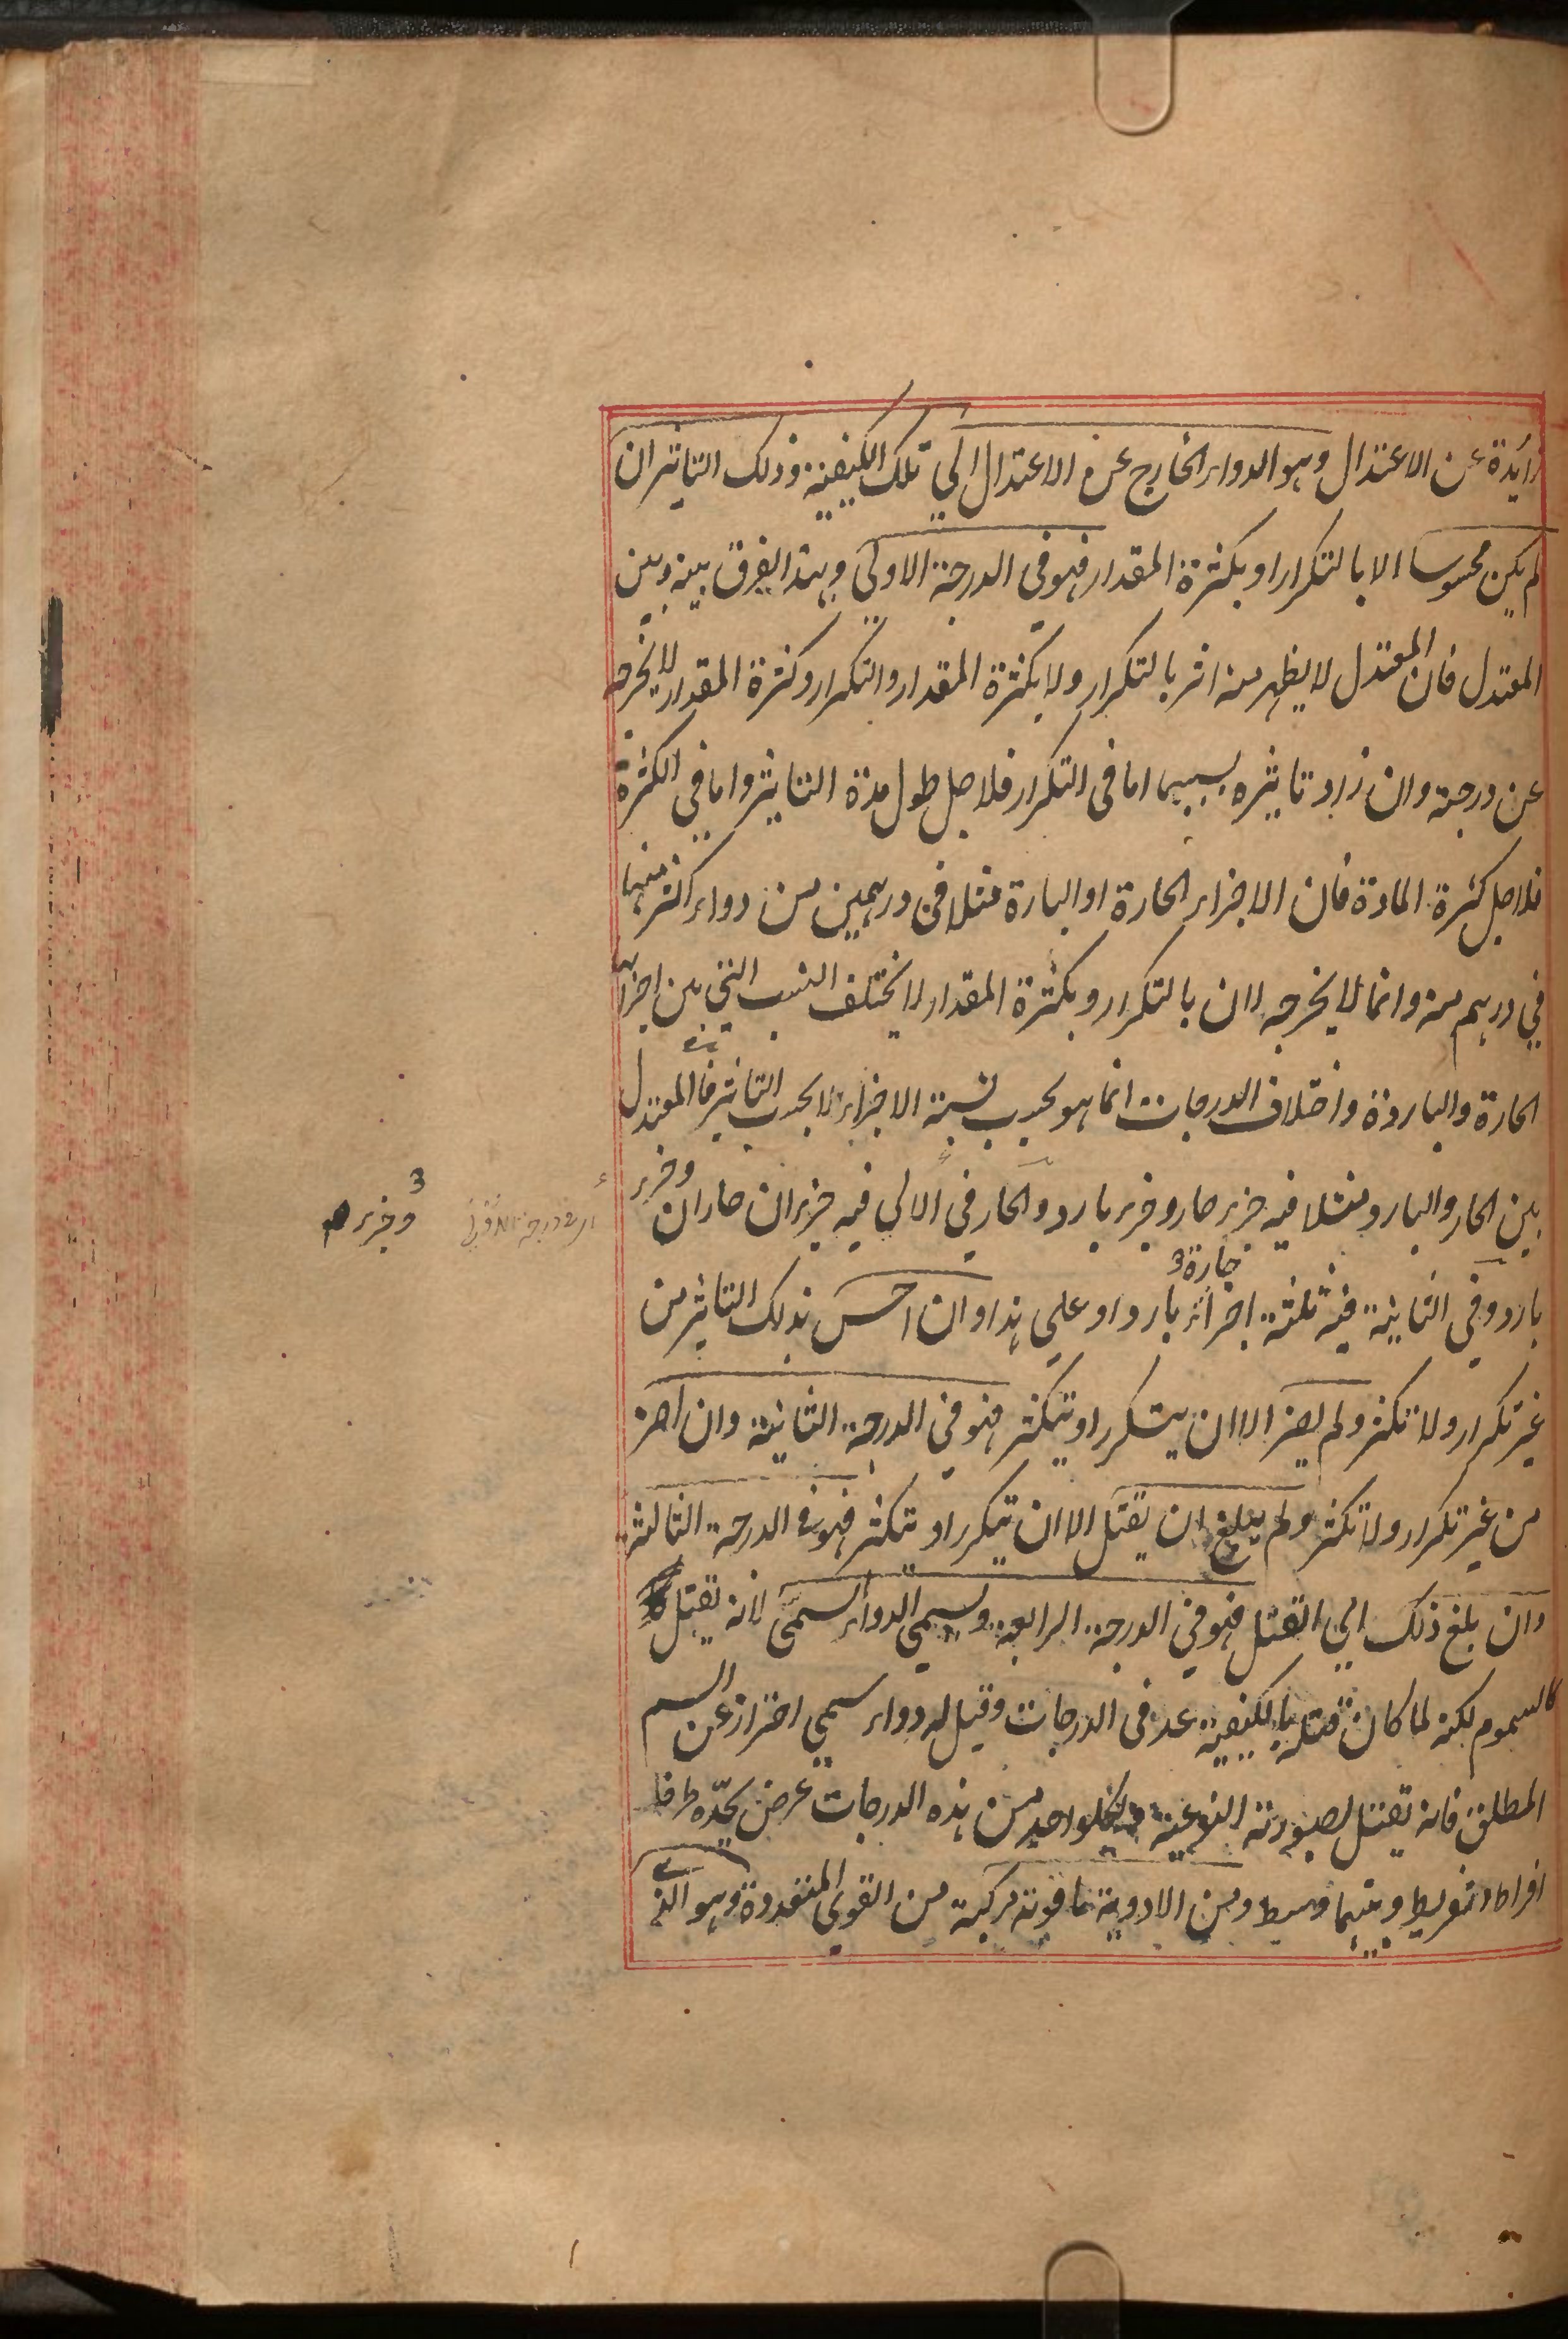 زائدة عن الاعتدال وهو الدواء الخارج عن الاعتدال الي تلك الكيفية وذلك التاثير ان
لم يكن محسوسا الا بالتكرار او بكثرة المقدار فهو في الدرجة الاولي وهذا الفرق بينه وبين
المعتدل فان المعتدل لا يظهر منه اثر بالتكرار ولا بكثرة المقدار والتكرار وكثرة المقدار لا يخرجه
عن درجة وان زاد تاثيره بسببهما اما في التكرار فلاجل طول مدة التاثير واما في الكثرة
فلاجل كثرة المادة فان الاجزاء الحارة او البارة مثلا في درهمين من دواء اكثر منها
في درهم منه وانما لا يخرجه لان بالتكرار وبكثرة المقدار لا يختلف النسب التي بين اجزائه
الحارة والباردة واختلاف الدرجات انما هو بحسب نسبة الاجزاء لا بحسب التاثير فالمعتدل
بين الحار والبارد مثلا فيه جزء حار وجزء بارد والحار في الاولي فيه جزءان حاران وجزء
وجزء
بارد وفي الثانية فيه ثلثة اجزاء حارة بارد او علي هذا وان احس بذلك التاثير من
غير تكرار ولا تكثر ولم يضر الا ان يتكرر او يتكثر فهو في الدرجة الثانية وان اضر
من غير تكرار ولا تكثر ولم يبلغ ان يقتل الا ان يتكرر او يتكثر فهو في الدرجة الثالثة
وان بلغ ذلك الي القتل فهو في الدرجة الرابعة ويسمي الدواء السمي لانه يقتل
كالسموم لكنه لما كان قتله بالكيفية عد في الدرجات وقيل له دواء سمي احتراز عن السم
المطلق فانه يقتل بصورته النوعية ولكل واحد من هذه الدرجات عرض يحدّه طرفا
افراط وتفريط وبينهما وسط ومن الادوية ما قوته مركبة من القوي المتعددة وهو الذي